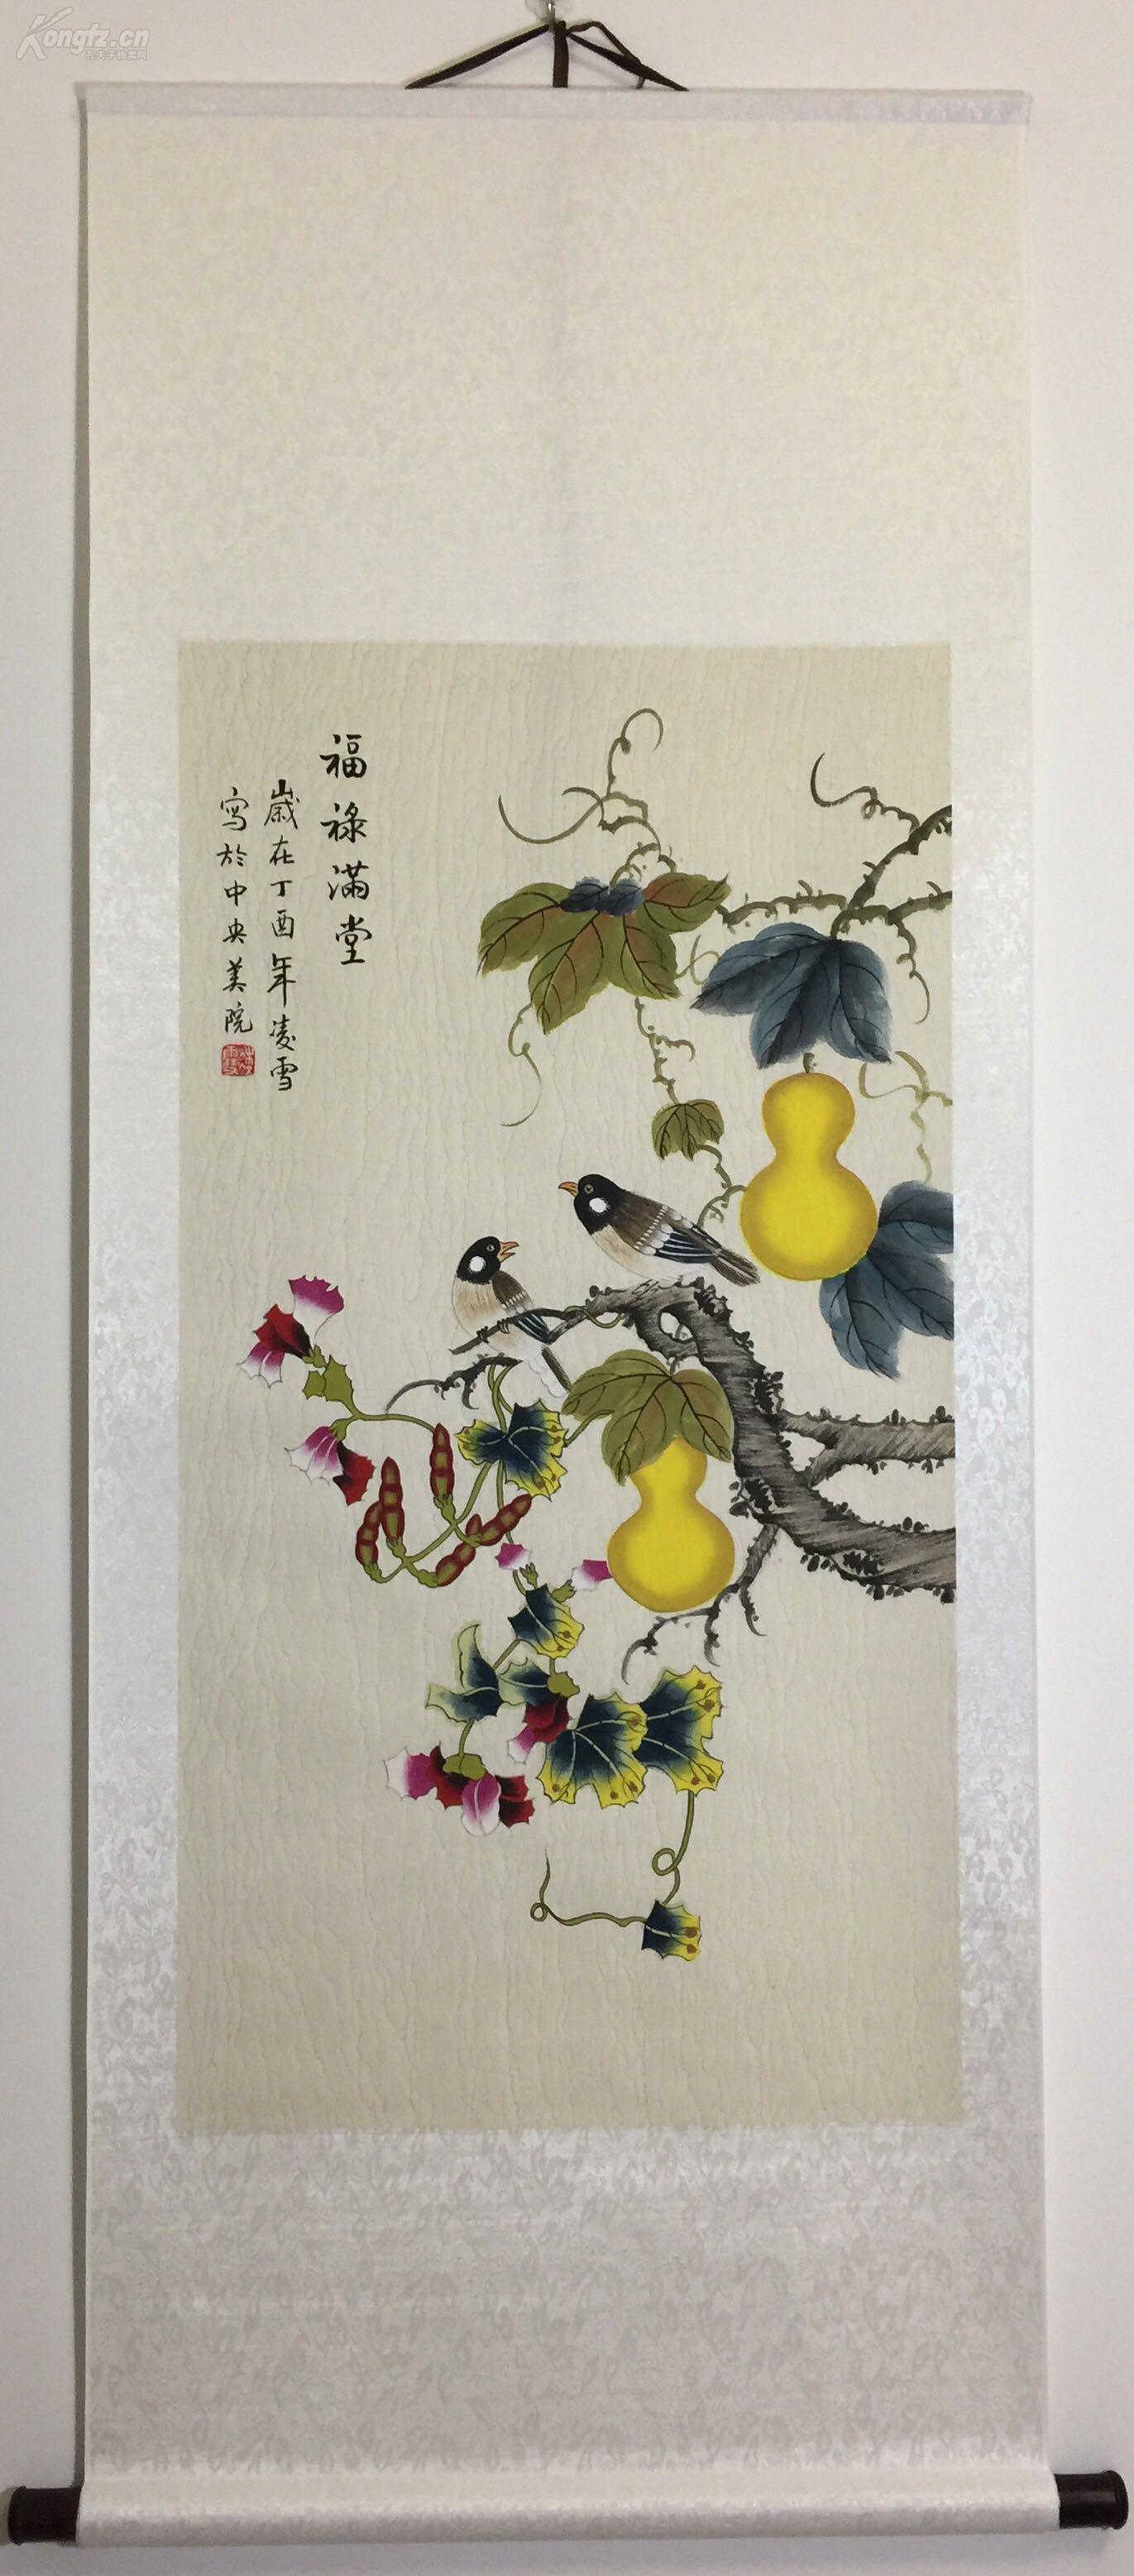 Kongfz.cn
孔夫子拍卖网
福祿滿堂
歲在丁酉年凌雪
寫於中央美院